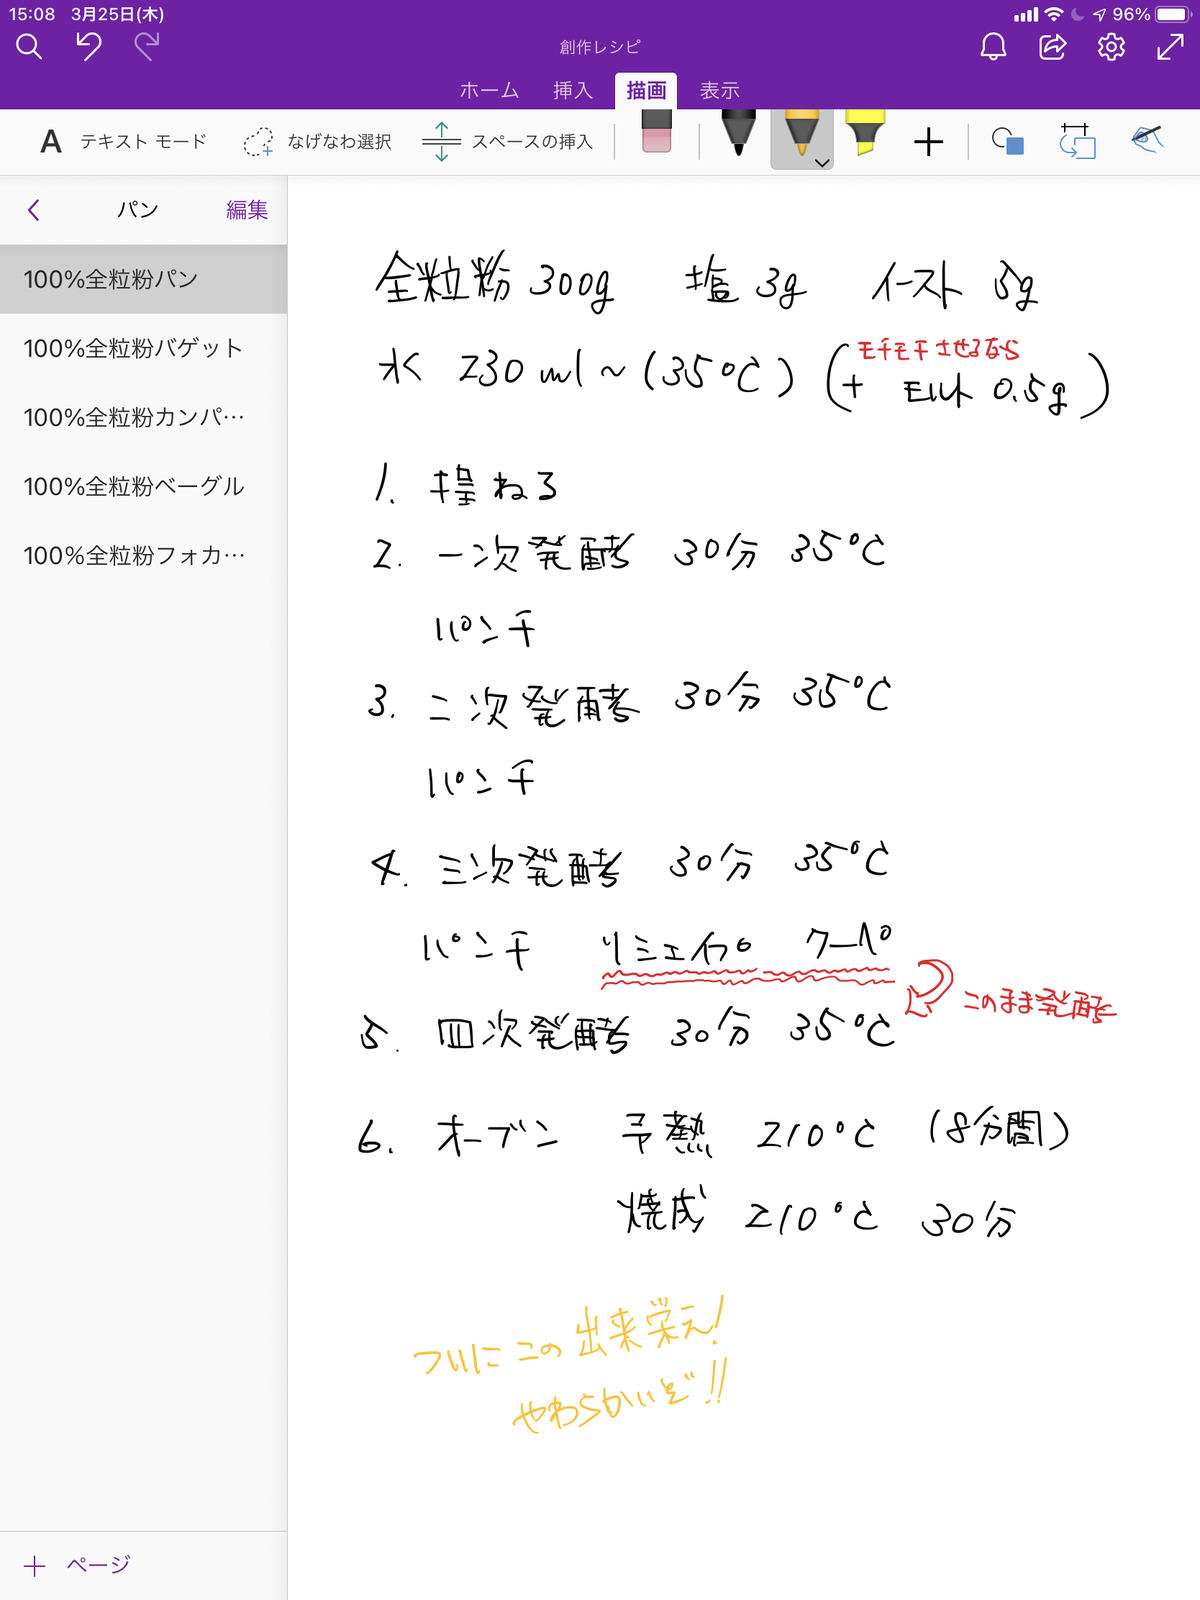 15:08 3月25日(木)
96%
創作レシピ
ホーム 挿入 描画 表示
A テキスト モード なげなわ選択 スペースの挿入
パン 編集
100%全粒粉パン
100%全粒粉バゲット
100%全粒粉カンパ…
100%全粒粉ベーグル
100%全粒粉フォカ…
+ ページ
全粒粉 300g 塩 3g イースト 5g
水 230ml~(35℃) (+ モルト 0.5g)
モチモチさせるなら
1. 捏ねる
2. 一次発酵 30分 35℃
パンチ
3. 二次発酵 30分 35℃
パンチ
4. 三次発酵 30分 35℃
パンチ リシェイプ クーペ
このまま発酵
5. 四次発酵 30分 35℃
6. オーブン 予熱 210℃ (8分間)
焼成 210℃ 30分
ついにこの出来栄え!
やわらかいぞ!!